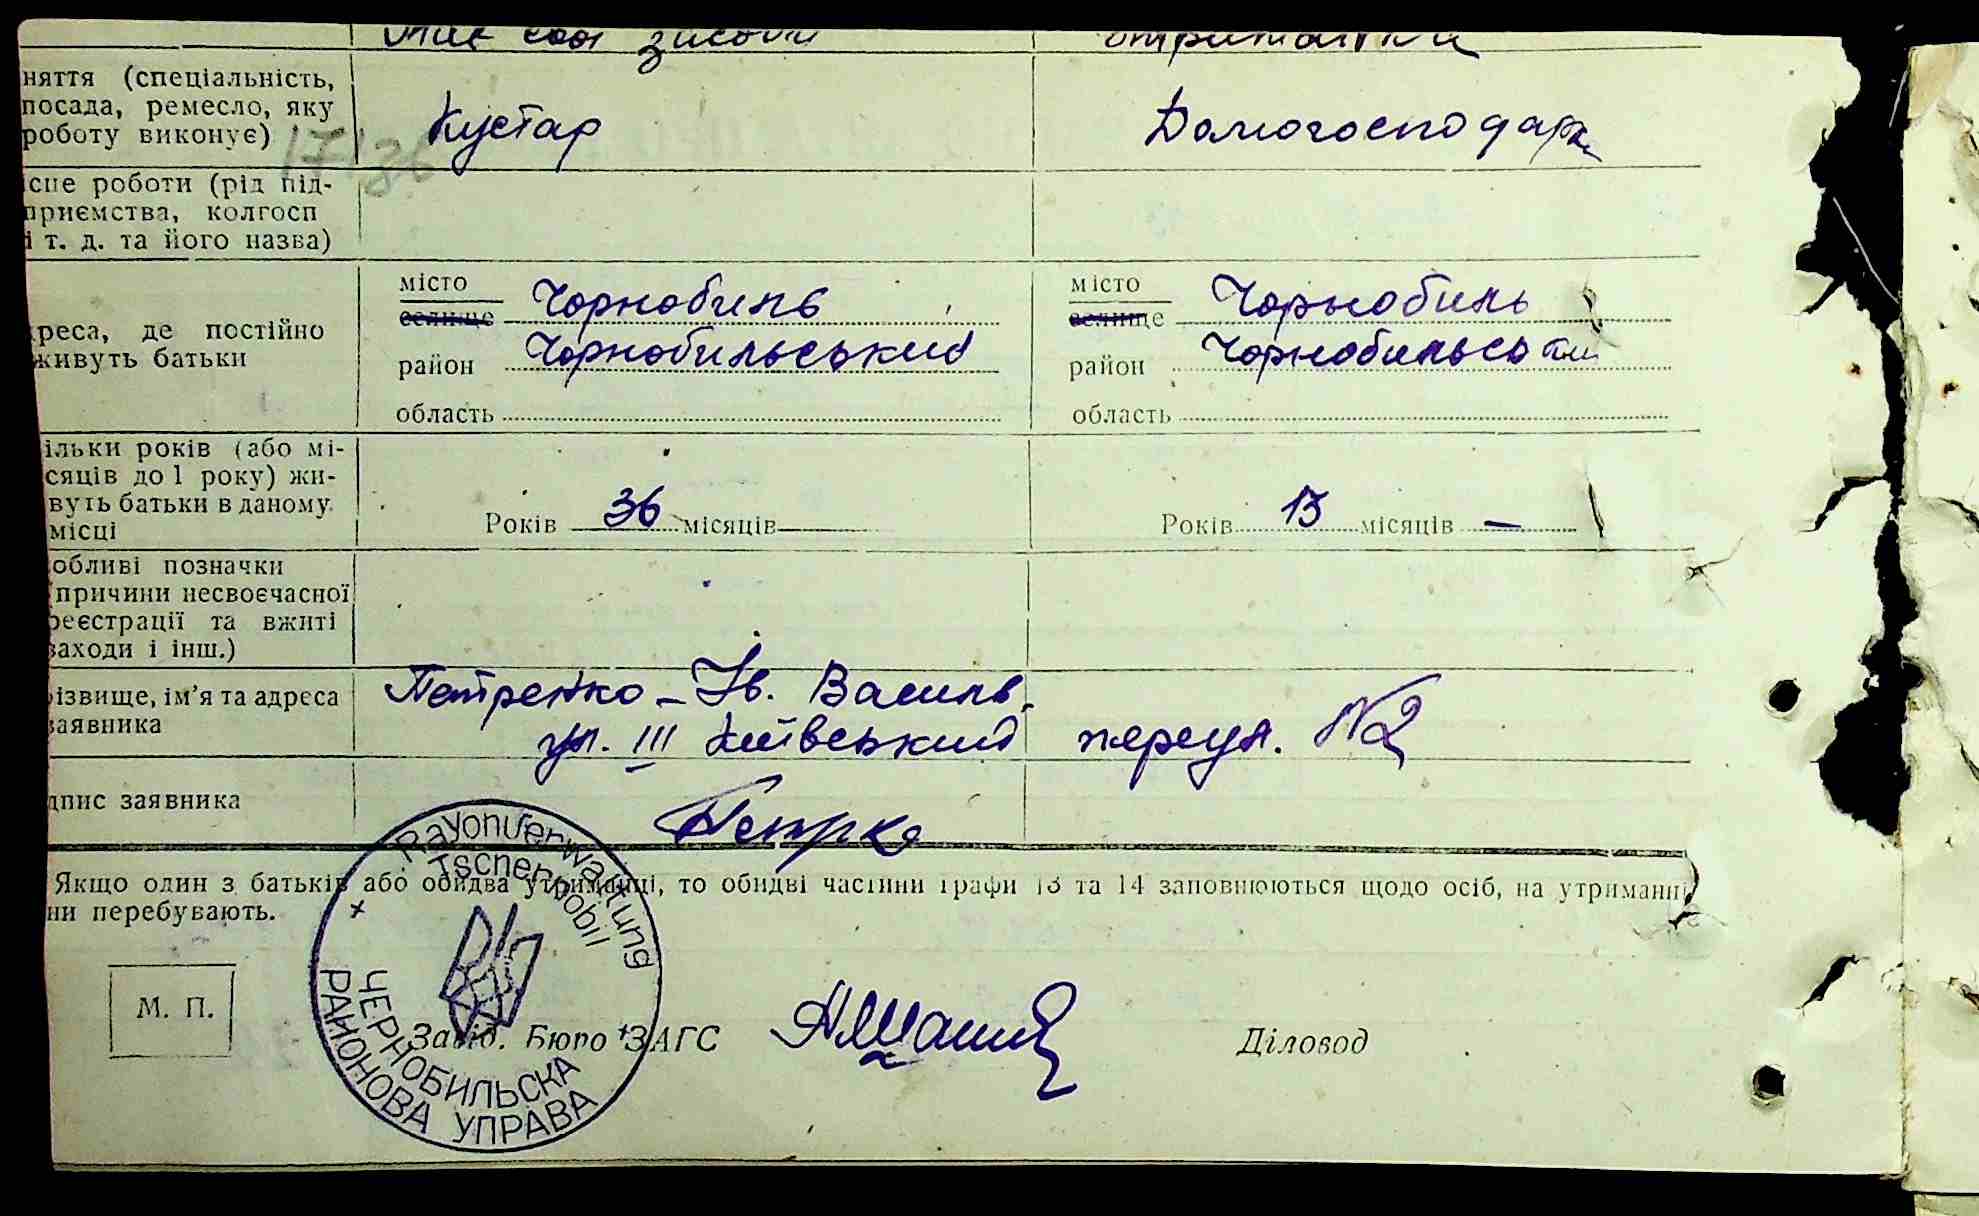 має свої засоби утриманка
няття (спеціальність,
посада, ремесло, яку
роботу виконує)
Кустар Домогосподарк.
17 36
існе роботи (рід під-
приємства, колгосп
і т. д. та його назва)
реса, де постійно
живуть батьки
місто Чорнобиль місто Чорнобиль
селище селище
район Чорнобильський район Чорнобильський
область область
ільки років (або мі-
сяців до 1 року) жи-
вуть батьки в даному
місці
Років 36 місяців Років 13 місяців —
обливі позначки
(причини несвоєчасної
реєстрації та вжиті
заходи і інш.)
різвище, ім'я та адреса
заявника
Петренко – Ів. Василь.
ул. III Київський переул. №2
дпис заявника
Петрко
Якщо один з батьків або обидва утриманці, то обидві частини графи 13 та 14 заповнюються щодо осіб, на утриманні
ни перебувають.
Rayonverwaltung
Tschernobil
ЧЕРНОБИЛЬСКА
РАЙОНОВА УПРАВА
М. П.
Завід. Бюро ЗАГС Діловод